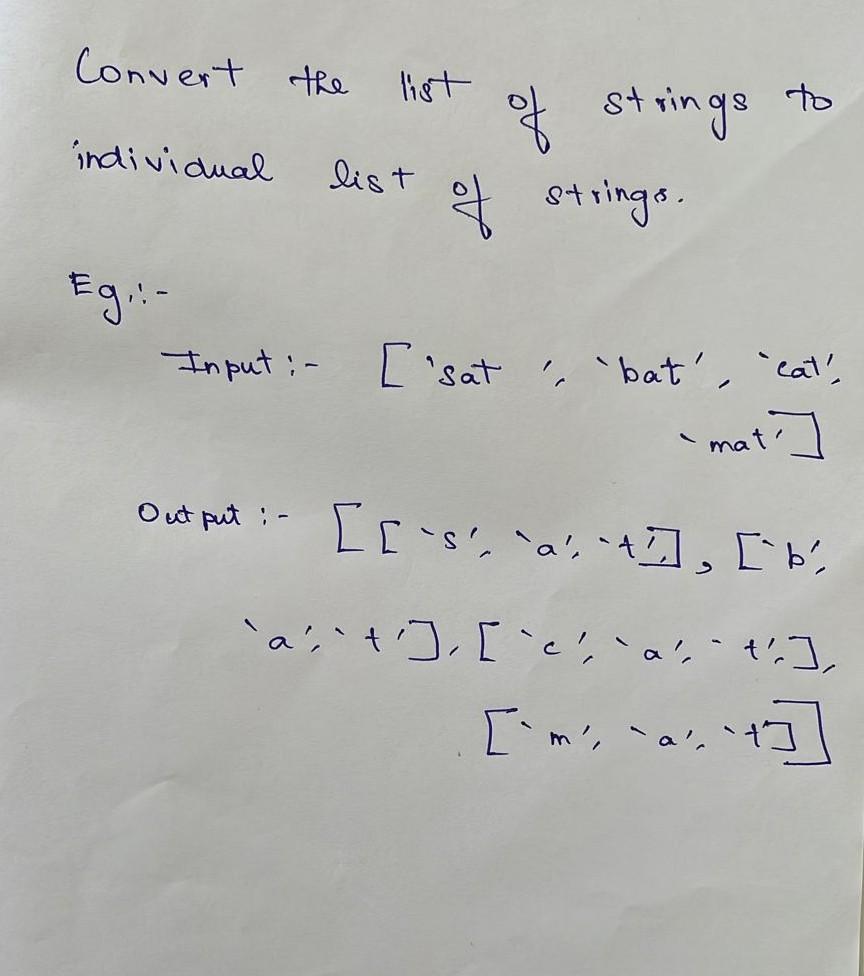 Convert the list of strings to
individual list of strings.
Eg.:-
Input :- ['sat ', 'bat', 'cat',
'mat']
Output :- [['s', 'a', 't'], ['b',
'a', 't'], ['c', 'a', 't',],
['m', 'a', 't']]